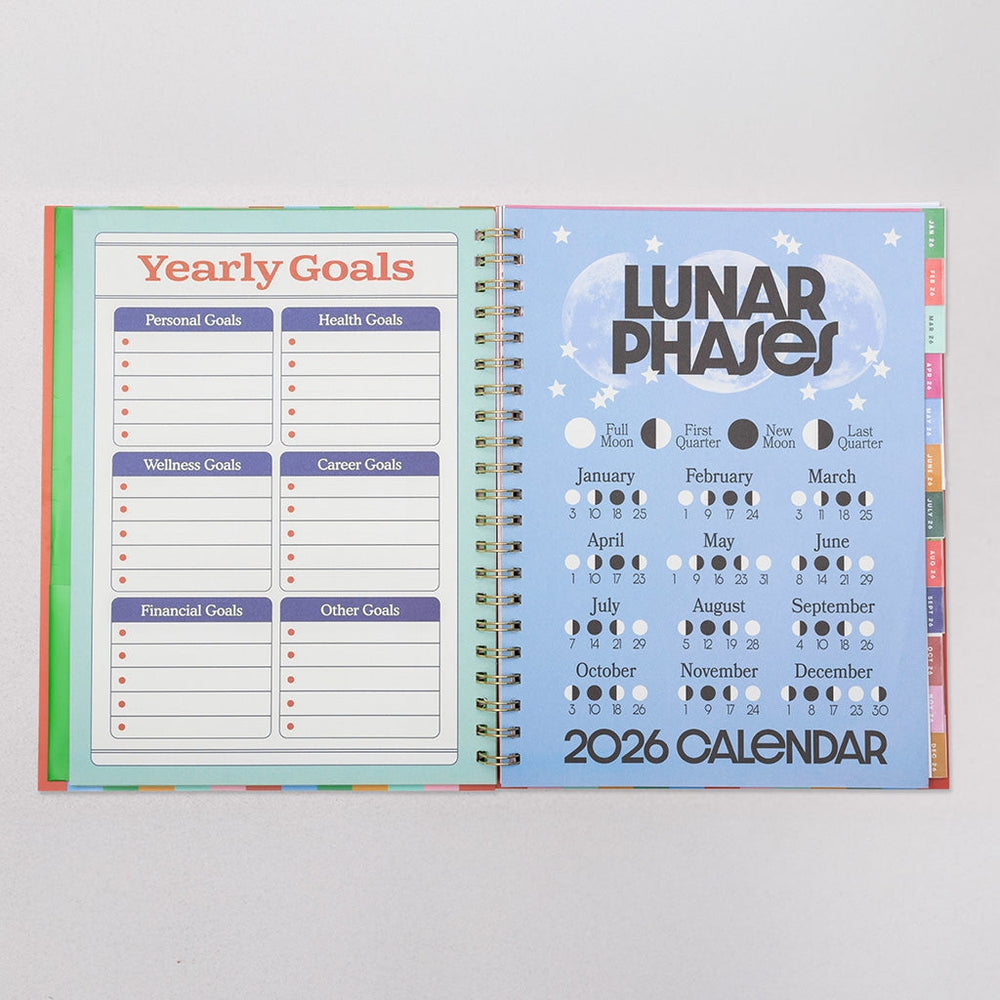 Yearly Goals
Personal Goals
Health Goals
Wellness Goals
Career Goals
Financial Goals
Other Goals
LUNAR
PHASES
Full
Moon
First
Quarter
New
Moon
Last
Quarter
January
3 10 18 25
February
1 9 17 24
March
3 11 18 25
April
1 10 17 23
May
1 9 16 23 31
June
8 14 21 29
July
7 14 21 29
August
5 12 19 28
September
4 10 18 26
October
3 10 18 26
November
1 9 17 24
December
1 8 17 23 30
2026 CALENDAR
JAN 26
FEB 26
MAR 26
APR 26
MAY 26
JUNE 26
JULY 26
AUG 26
SEPT 26
OCT 26
NOV 26
DEC 26